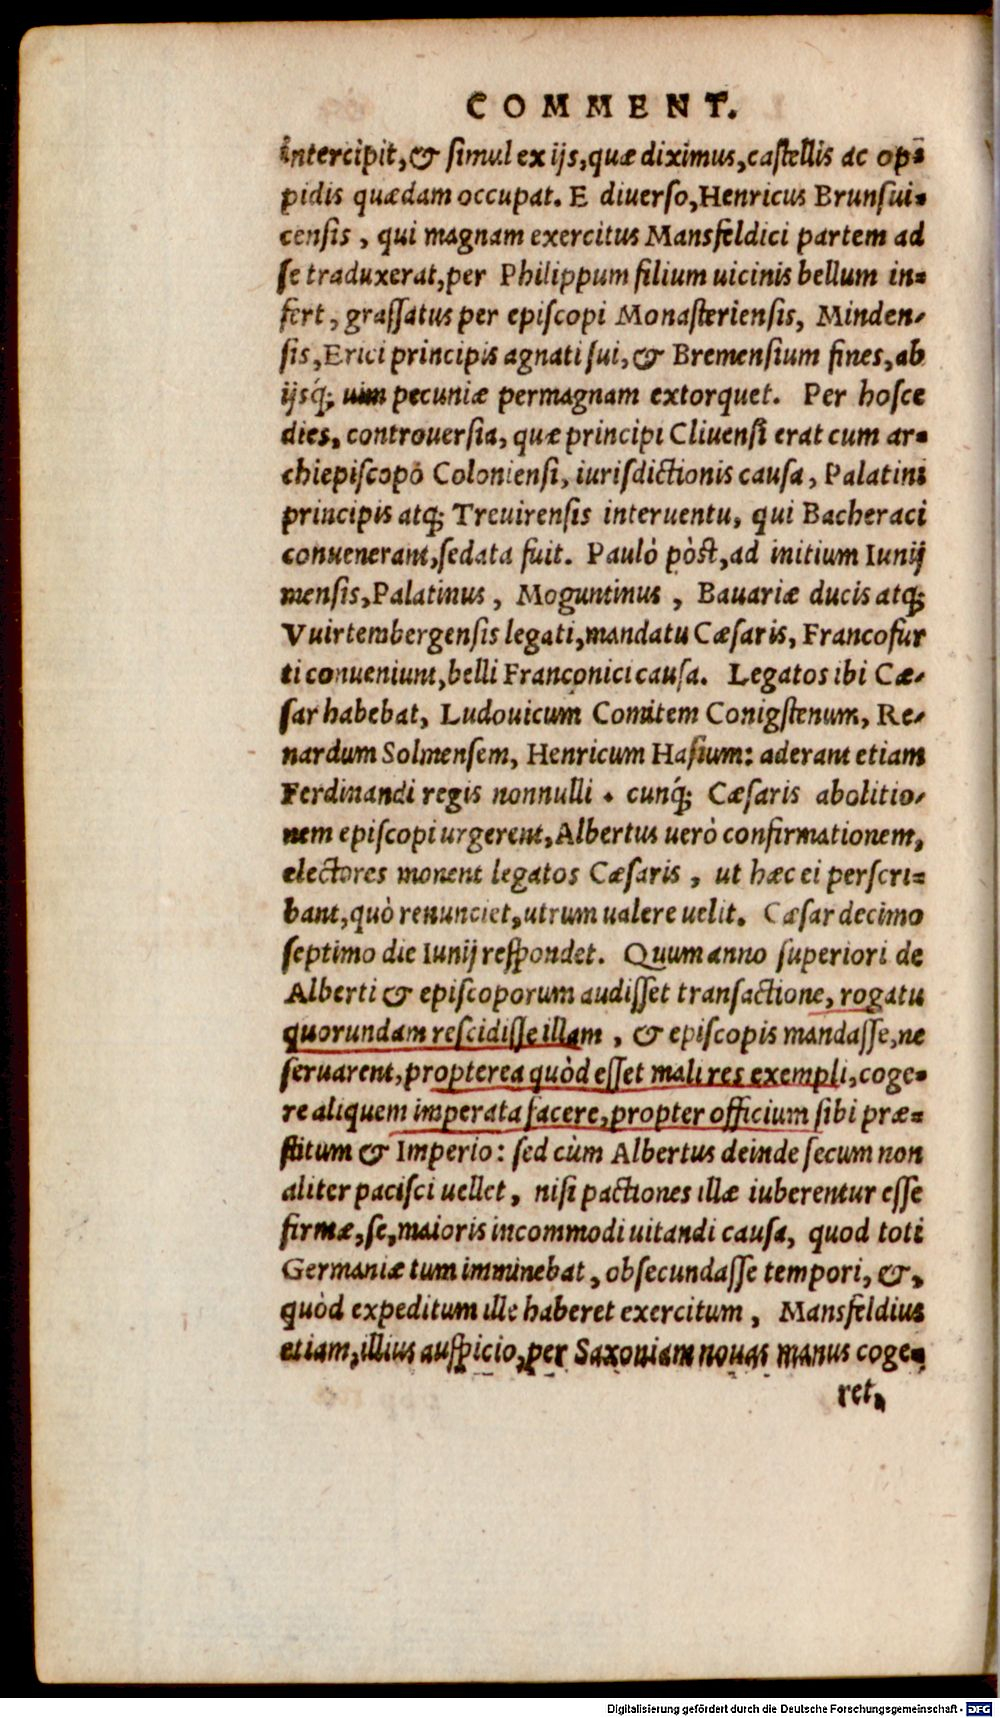 COMMENT.
intercipit, & simul ex ijs, quæ diximus, castellis ac op-
pidis quædam occupat. E diuerso, Henricus Brunsui-
censis, qui magnam exercitus Mansfeldici partem ad
se traduxerat, per Philippum filium uicinis bellum in-
fert, grassatus per episcopi Monasteriensis, Minden-
sis, Erici principis agnati sui, & Bremensium fines, ab
ijsq́; uim pecuniæ permagnam extorquet. Per hosce
dies, controuersia, quæ principi Cliuensi erat cum ar-
chiepiscopo Coloniensi, iurisdictionis causa, Palatini
principis atq; Treuirensis interuentu, qui Bacheraci
conuenerant, sedata fuit. Paulò pòst, ad initium Iunij
mensis, Palatinus, Moguntinus, Bauariæ ducis atq;
Vuirtembergensis legati, mandatu Cæsaris, Francofur
ti conueniunt, belli Franconici causa. Legatos ibi Cæ-
sar habebat, Ludouicum Comitem Conigstenum, Re-
nardum Solmensem, Henricum Hasium: aderant etiam
Ferdinandi regis nonnulli. cunq́; Cæsaris abolitio-
nem episcopi urgerent, Albertus uerò confirmationem,
electores monent legatos Cæsaris, ut hæc ei perscri-
bant, quò renunciet, utrum ualere uelit. Cæsar decimo
septimo die Iunij respondet. Quum anno superiori de
Alberti & episcoporum audisset transactione, rogatu
quorundam rescidisse illam, & episcopis mandasse, ne
seruarent, propterea quòd esset mali res exempli, coge-
re aliquem imperata facere, propter officium sibi præ-
stitum & Imperio: sed cùm Albertus deinde secum non
aliter pacisci uellet, nisi pactiones illæ iuberentur esse
firmæ, se, maioris incommodi uitandi causa, quod toti
Germaniæ tum imminebat, obsecundasse tempori, &,
quòd expeditum ille haberet exercitum, Mansfeldius
etiam, illius auspicio, per Saxoniam nouas manus coge-
ret,
Digitalisierung gefördert durch die Deutsche Forschungsgemeinschaft - DFG